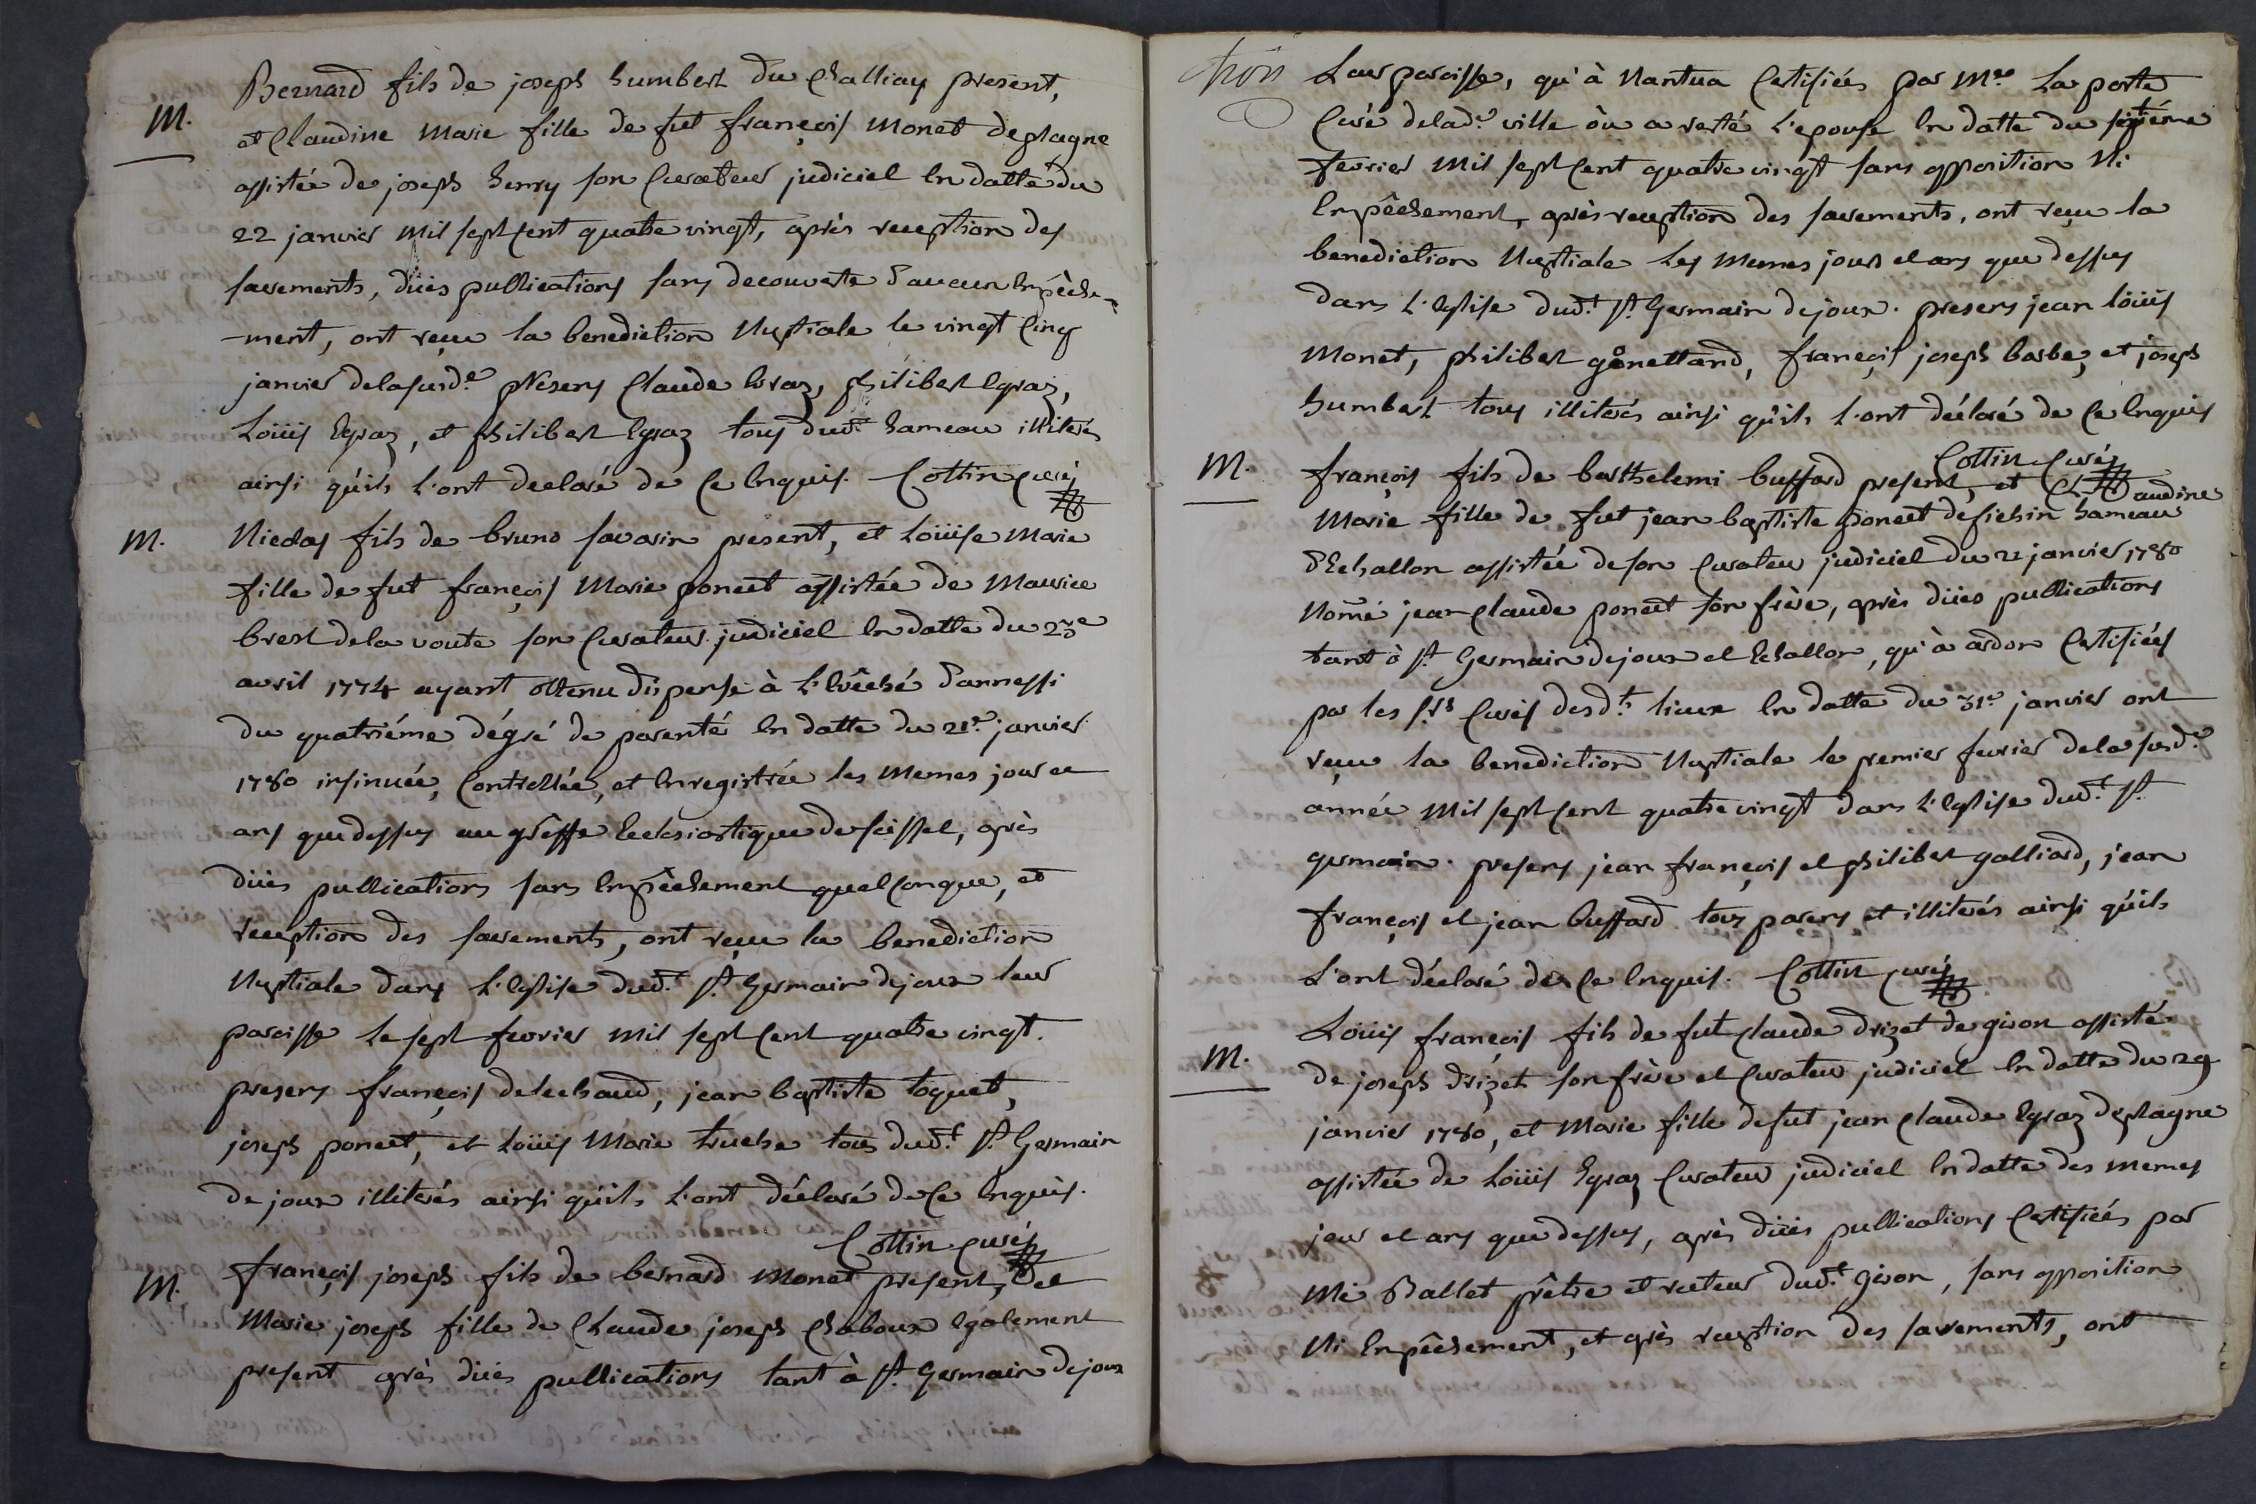 M.
Bernard fils de joseph humbert du Challiay present,
et Claudine Marie fille de fut françois Monet deplagne
assistée de joseph henry son Curateur judiciel En datte du
22 janvier Mil sept Cent quatre vingt, après reception des
sacrements, düës publications sans decouverte d'aucun Empêche-
-ment, ont reçu la benediction Nuptiale le vingt Cinq
janvier de la susde. presens Claude Egraz, philibert Egraz,
Loüis Egraz, et philibert Egraz tous dudt. hameau illiterés
ainsi qu'ils l'ont declaré de Ce Enquis. Cottin Curé
M.
Nicolas fils de bruno savarin present, et Loüise Marie
fille de fut françois Marie poncet assistée de Maurice
brest de la voute son Curateur judiciel En datte du
avril 1774 ayant obtenu dispense à l'Evêché d'annessi
du quatriéme dégré de parenté En datte du 21e. janvier
1780 insinuée, Controllée, et Enregistrée les Memes jour et
ans que dessus au gréffe Ecclesiastique de seissel, après
düës publications sans Empêchement quelconque, et
reception des sacrements, ont reçu la benediction
Nuptiale dans l'Eglise dudt. St. Germain dejoux leur
paroisse le sept fevrier Mil sept Cent quatre vingt.
presens françois delechaud, jean baptiste toquet,
joseph poncet, et Loüis Marie truche tous dudt. St. Germain
de joux illiterés ainsi qu'ils l'ont déclaré de Ce Enquis.
Cottin Curé
M.
françois joseph fils de bernard Monet present, et
Marie joseph fille de Claude joseph Chaboux Egalement
present après düës publications tant à St. Germain dejoux
trois
Leur paroisse, qu'à Nantua Certifiées par Mre. La porte
Curé delade. ville où a resté l'epouse En datte du septiéme
fevrier Mil sept Cent quatre vingt sans opposition Ni
Empêchement, après reception des sacrements, ont reçu la
benediction Nuptiale les Memes jour et ans que dessus
dans l'Eglise dudt. St. Germain dejoux. presens jean loüis
Monet, philibert gonettand, françois joseph barbe, et joseph
humbert tous illiterés ainsi qu'ils l'ont déclaré de Ce Enquis
Cottin Curé
M.
françois fils de barthelemi buffard present, et Claudine
Marie fille de fut jean baptiste poncet desiehin hameau
d'Echallon assistée de son Curateur judiciel du 21 janvier 1780
Nom̃é jean Claude poncet son frère, après düës publications
tant à St. Germain dejoux et Echallon, qu'à ardon Certifiées
par les Srs Curés desdts. lieux En datte du 31e. janvier ont
reçu la benediction Nuptiale le premier fevrier de la susde.
année Mil sept Cent quatre vingt dans l'Eglise dudt. St.
germain. presens jean françois et philibert galliard, jean
françois et jean buffard tous parens et illiterés ainsi qu'ils
l'ont déclaré de Ce Enquis. Cottin Curé
M.
Loüis françois fils de fut Claude drizet de giron assisté
de joseph drizet son frère et Curateur judiciel En datte du 29
janvier 1780, et Marie fille de fut jean Claude Egraz deplagne
assistée de Loüis Egraz Curateur judiciel En datte des Memes
jour et ans que dessus, après düës publications Certifiées par
Me Ballet prêtre et recteur dudt. giron, sans opposition
Ni Empêchement, et après reception des sacrements, ont